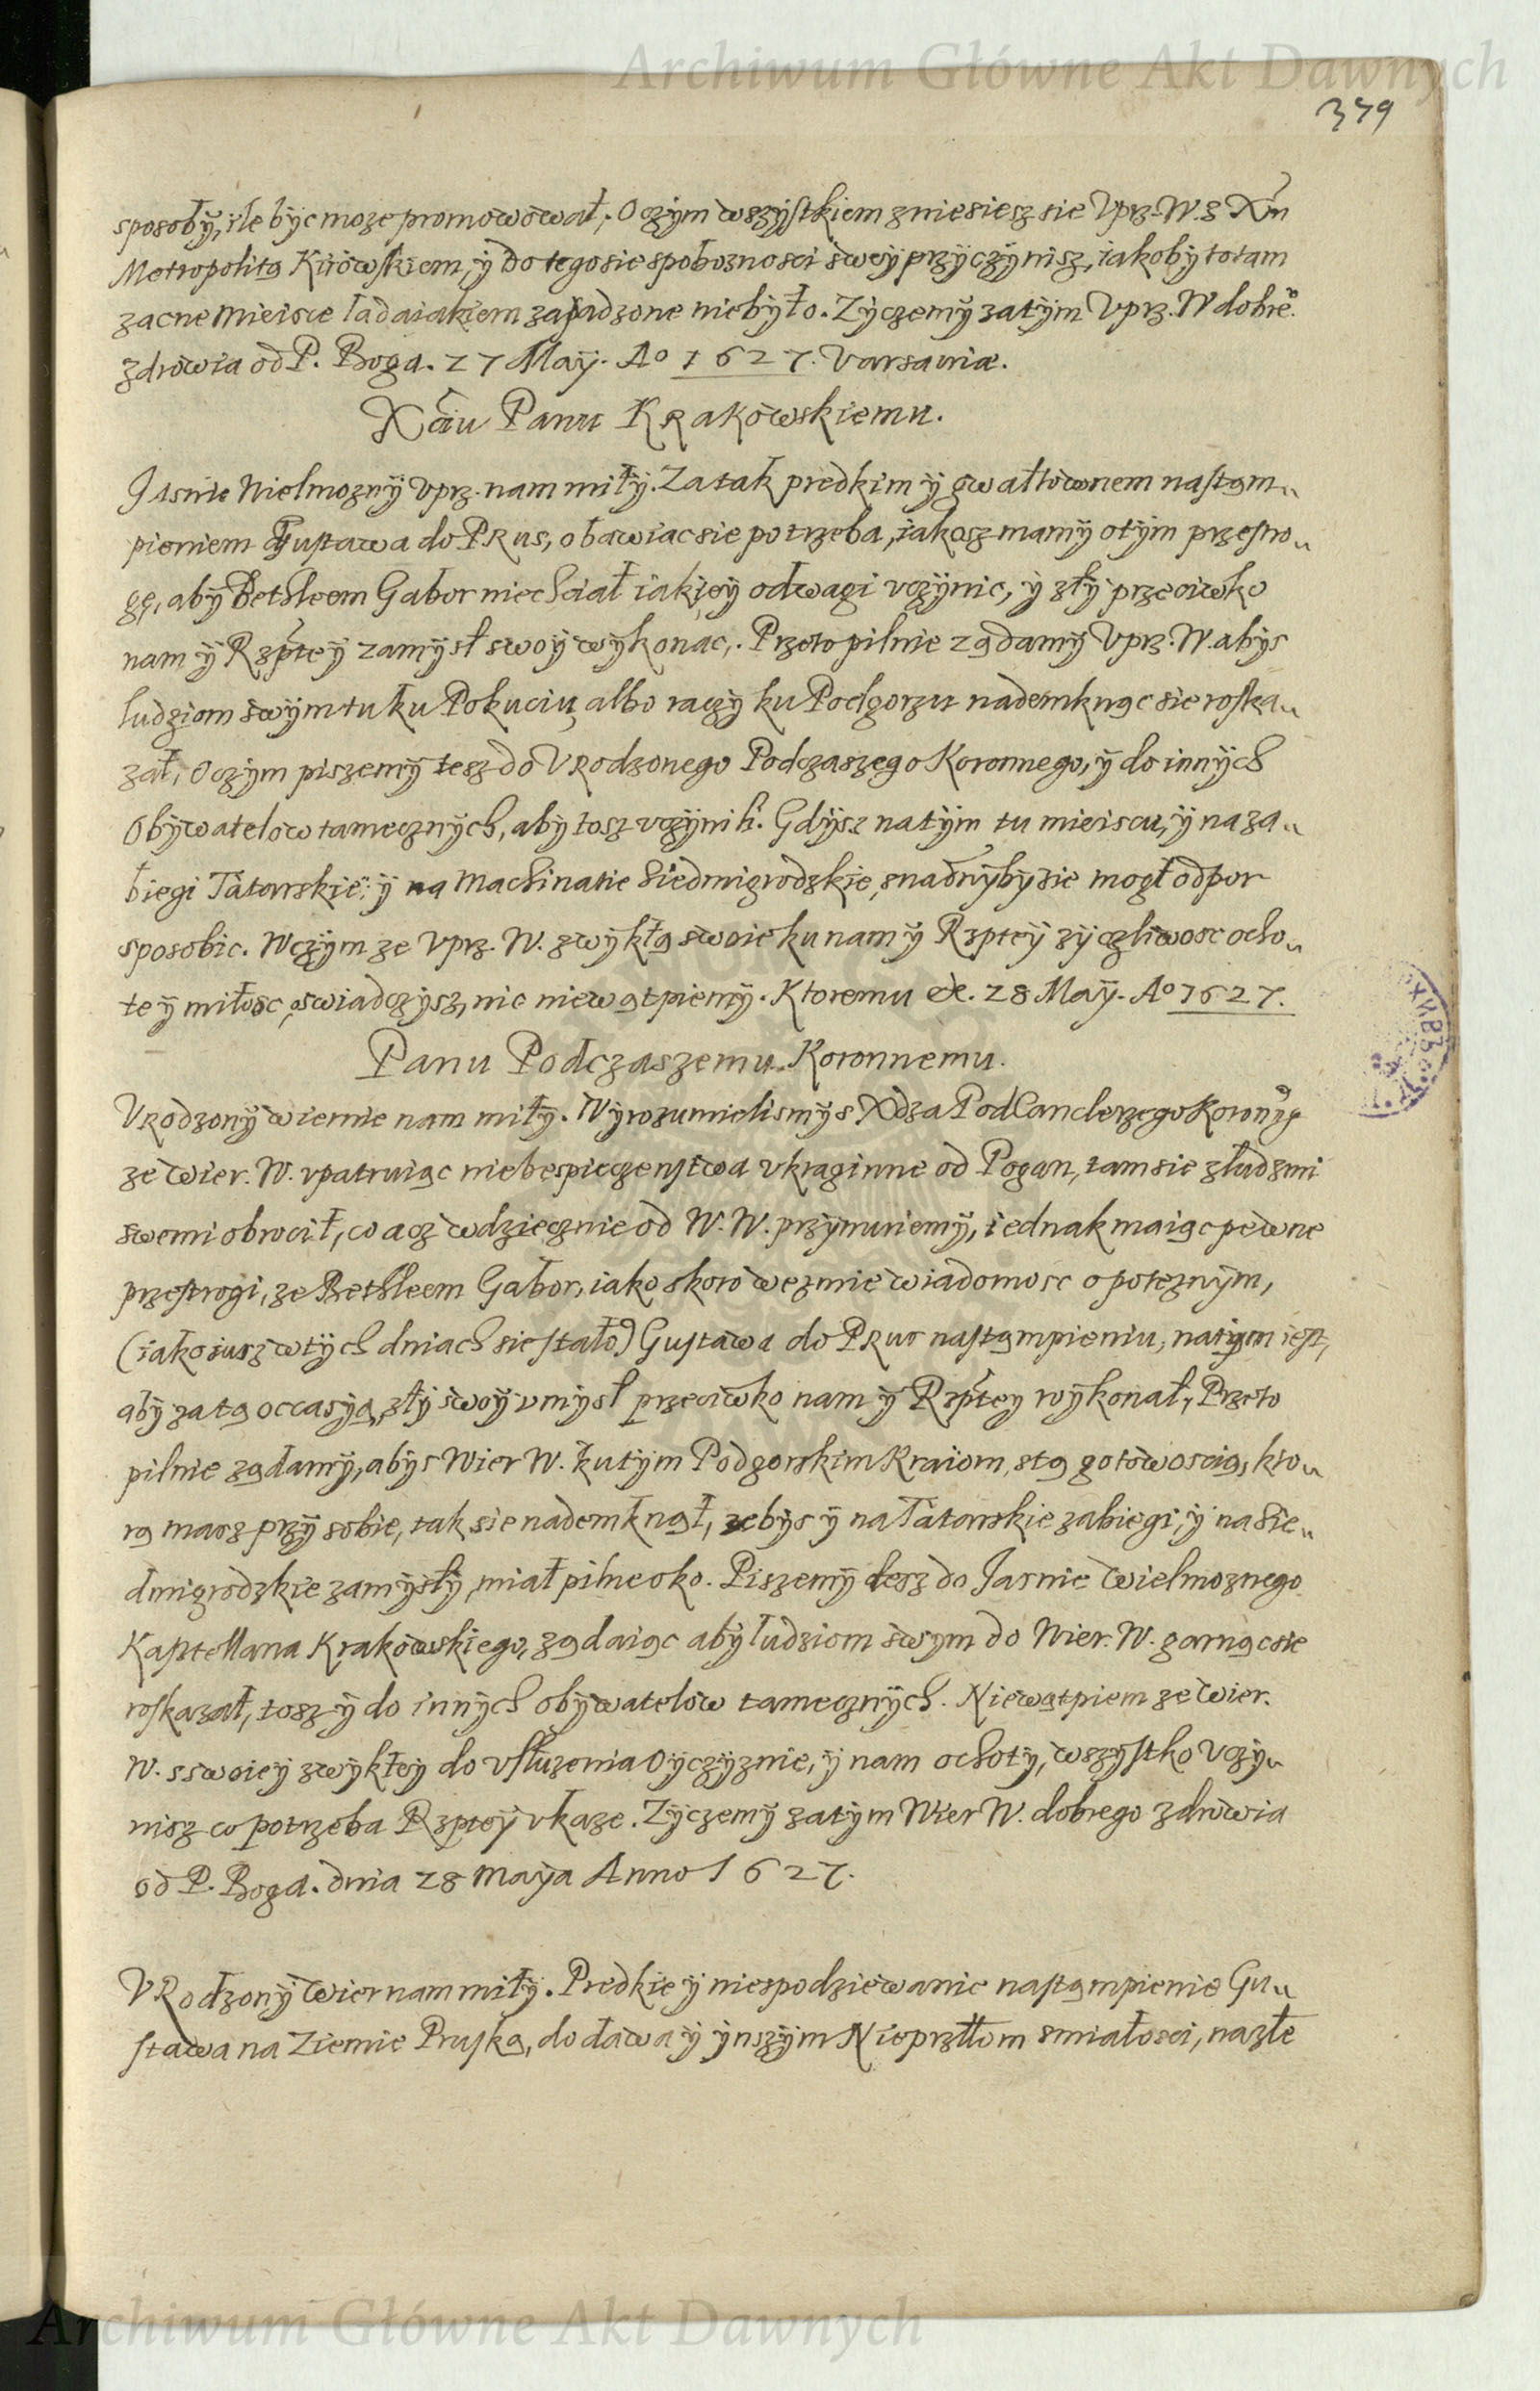 Archiwum Główne Akt Dawnych
379
sposoby, ile byc moze promowował, O czym wszystkiem zniesiesz sie Vprz. W. z Xm
Metropolitą Kiiowskiem, y do tego sie s pobozności swey przyczynisz, iakoby to tam
zacne mieisce ladaiakiem zasadzone niebyło. Zyczemy zatym Vprz. W dobre°.
zdrowia od P. Boga. 27 May. A° 1627. Varsaviæ.
Xciu Panu Krakowskiemu.
Jasnie Wielmozny Vprz. nam miły. Za tak predkim y gwałtownem nastąm„
pieniem Gustawa do Prus, obawiac sie potrzeba, iakosz mamy o tym przestro„
gę, aby Bethleem Gabor niechciał iakiey odwagi vczynic, y zły przeciwko
nam y Rzptey zamysł swoy wykonac,. Przeto pilnie ządamy Vprz. W. abys
ludziom swym tu ku Pokuciu, albo raczy ku Podgorzu nademknąc sie roska„
zał, O czym piszemy tesz do Vrodzonego Podczaszego Koronnego, y do innych
Obywatelow tamecznych, aby tosz vczynili. Gdysz na tym tu mieiscu, y na za„
biegi Tatarskie, y na Machinatie Siedmigrodzkie, snadnyby sie mogł odpor
sposobic. W czym ze Vprz. W. zwykłą swoie ku nam y Rzptey zyczliwosc ocho„
te y miłosc oswiadczysz, nic niewątpiemy. Ktoremu &. 28 May. A° 1627.
Panu Podczaszemu Koronnemu.
Vrodzony wiernie nam miły. Wyrozumielismy s Xdza PodCanclerzego Koronng°
ze Wier. W. vpatruiąc niebespieczenstwa vkraginne od Pogan, tam sie z ludzmi
swemi obrocił, co acz wdziecznie od W. W. przymuiemy, iednak maiąc pewne
przestrogi, ze Bethleem Gabor, iako skoro wezmie wiadomosc o poteznym,
(iako iusz w tych dniach sie stało) Gustawa do Prus nastąmpieniu, na tym iest,
aby za tą occasyą, zły swoy vmysl przeciwko nam y Rzptey wykonał, Przeto
pilnie ządamy, abys Wier W. ku tym Podgorskim Kraiom, s tą gotowoscią, kto„
rą masz przy sobie, tak sie nademknął, zebys y na Tatarskie zabiegi, y na Sie„
dmigrodzkie zamysły, miał pilne oko. Piszemy tesz do Jasnie Wielmoznego
Kasztellana Krakowskiego, ządaiąc aby ludziom swym do Wier. W. garnąc sie
roskazał, tosz y do innych obywatelow tamecznych. Niewątpiem ze Wier.
W. s swoiey zwykłey do vsłuzenia Oyczyznie, y nam ochoty, wszystko vczy„
nisz co potrzeba Rzptey vkaze. Zyczemy zatym Wier W. dobrego zdrowia
od P. Boga. dnia 28 Maya Anno 1627.
Vrodzony Wier nam miły. Predkie y niespodziewanie nastąmpienie Gu„
stawa na Ziemie Pruską, dodawa y ynszym Nieprzłłom smiałosci, na złe
Archiwum Główne Akt Dawnych